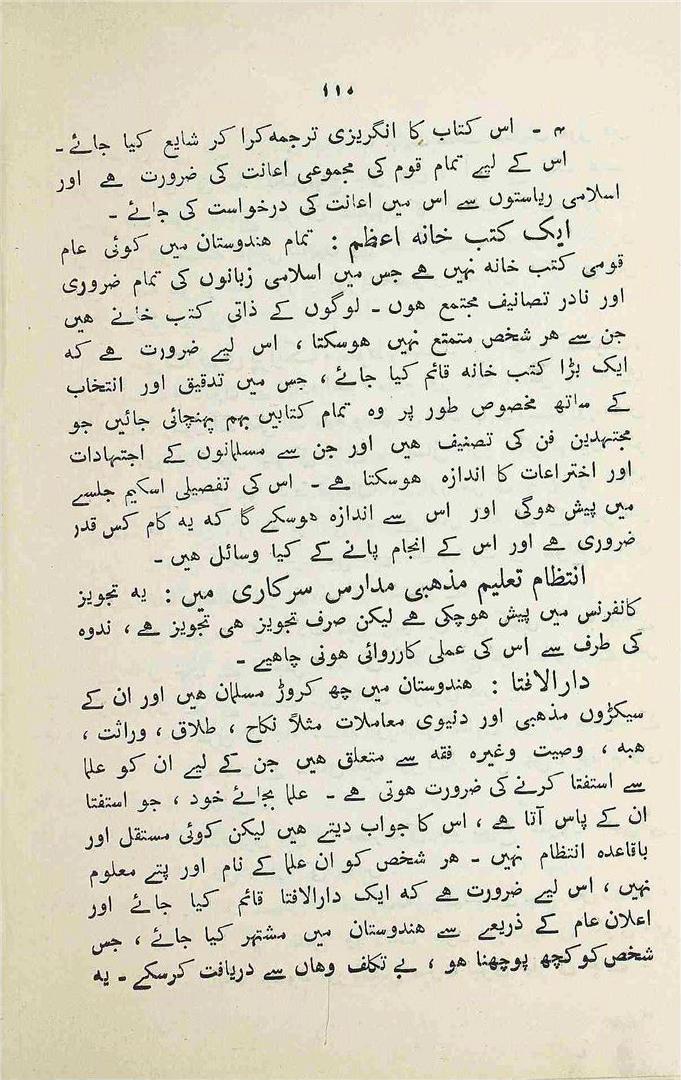 ۱۱۰
۴ - اس کتاب کا انگریزی ترجمہ کرا کر شایع کیا جائے۔
اس کے لیے تمام قوم کی مجموعی اعانت کی ضرورت ہے اور
اسلامی ریاستوں سے اس میں اعانت کی درخواست کی جائے ۔
ایک کتب خانہ اعظم : تمام ھندوستان میں کوئی عام
قومی کتب خانہ نہیں ہے جس میں اسلامی زبانوں کی تمام ضروری
اور نادر تصانیف مجتمع ھوں ۔ لوگوں کے ذاتی کتب خانے ھیں
جن سے ھر شخص متمتع نہیں ھوسکتا ، اس لیے ضرورت ہے کہ
ایک بڑا کتب خانہ قائم کیا جائے ، جس میں تدقیق اور انتخاب
کے ساتھ مخصوص طور پر وہ تمام کتابیں بہم پہنچائی جائیں جو
مجتہدین فن کی تصنیف ھیں اور جن سے مسلمانوں کے اجتہادات
اور اختراعات کا اندازہ ھوسکتا ہے ۔ اس کی تفصیلی اسکیم جلسے
میں پیش ھوگی اور اس سے اندازہ ھوسکے گا کہ یہ کام کس قدر
ضروری ہے اور اس کے انجام پانے کے کیا وسائل ھیں ۔
انتظام تعلیم مذھبی مدارس سرکاری میں : یہ تجویز
کانفرنس میں پیش ھوچکی ہے لیکن صرف تجویز ھی تجویز ہے ، ندوہ
کی طرف سے اس کی عملی کارروائی ھونی چاھیے ۔
دارالافتا : ھندوستان میں چھ کروڑ مسلمان ھیں اور ان کے
سیکڑوں مذھبی اور دنیوی معاملات مثلاً نکاح ، طلاق ، وراثت ،
ھبہ ، وصیت وغیرہ فقہ سے متعلق ھیں جن کے لیے ان کو علما
سے استفتا کرنے کی ضرورت ھوتی ہے ۔ علما بجائے خود ، جو استفتا
ان کے پاس آتا ہے ، اس کا جواب دیتے ھیں لیکن کوئی مستقل اور
باقاعدہ انتظام نہیں ۔ ھر شخص کو ان علما کے نام اور پتے معلوم
نہیں ، اس لیے ضرورت ہے کہ ایک دارالافتا قائم کیا جائے اور
اعلان عام کے ذریعے سے ھندوستان میں مشتہر کیا جائے ، جس
شخص کو کچھ پوچھنا ھو ، بے تکلف وھاں سے دریافت کرسکے ۔ یہ